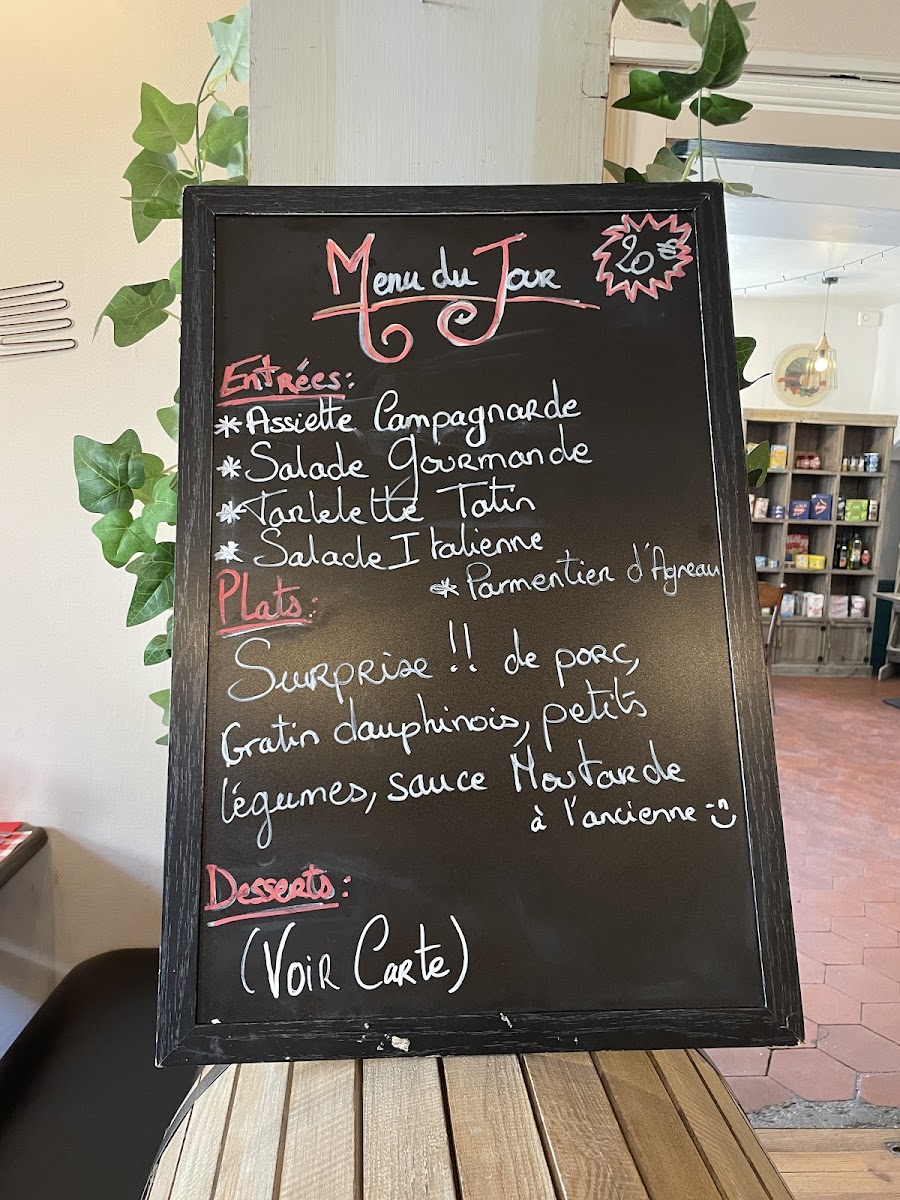 Menu du Jour
20€
Entrées:
* Assiette Campagnarde
* Salade gourmande
* Tartelette Tatin
* Salade Italienne
* Parmentier d'Agneau
Plats:
Surprise !! de porc,
Gratin dauphinois, petits
légumes, sauce Moutarde
à l'ancienne
Desserts:
(Voir Carte)